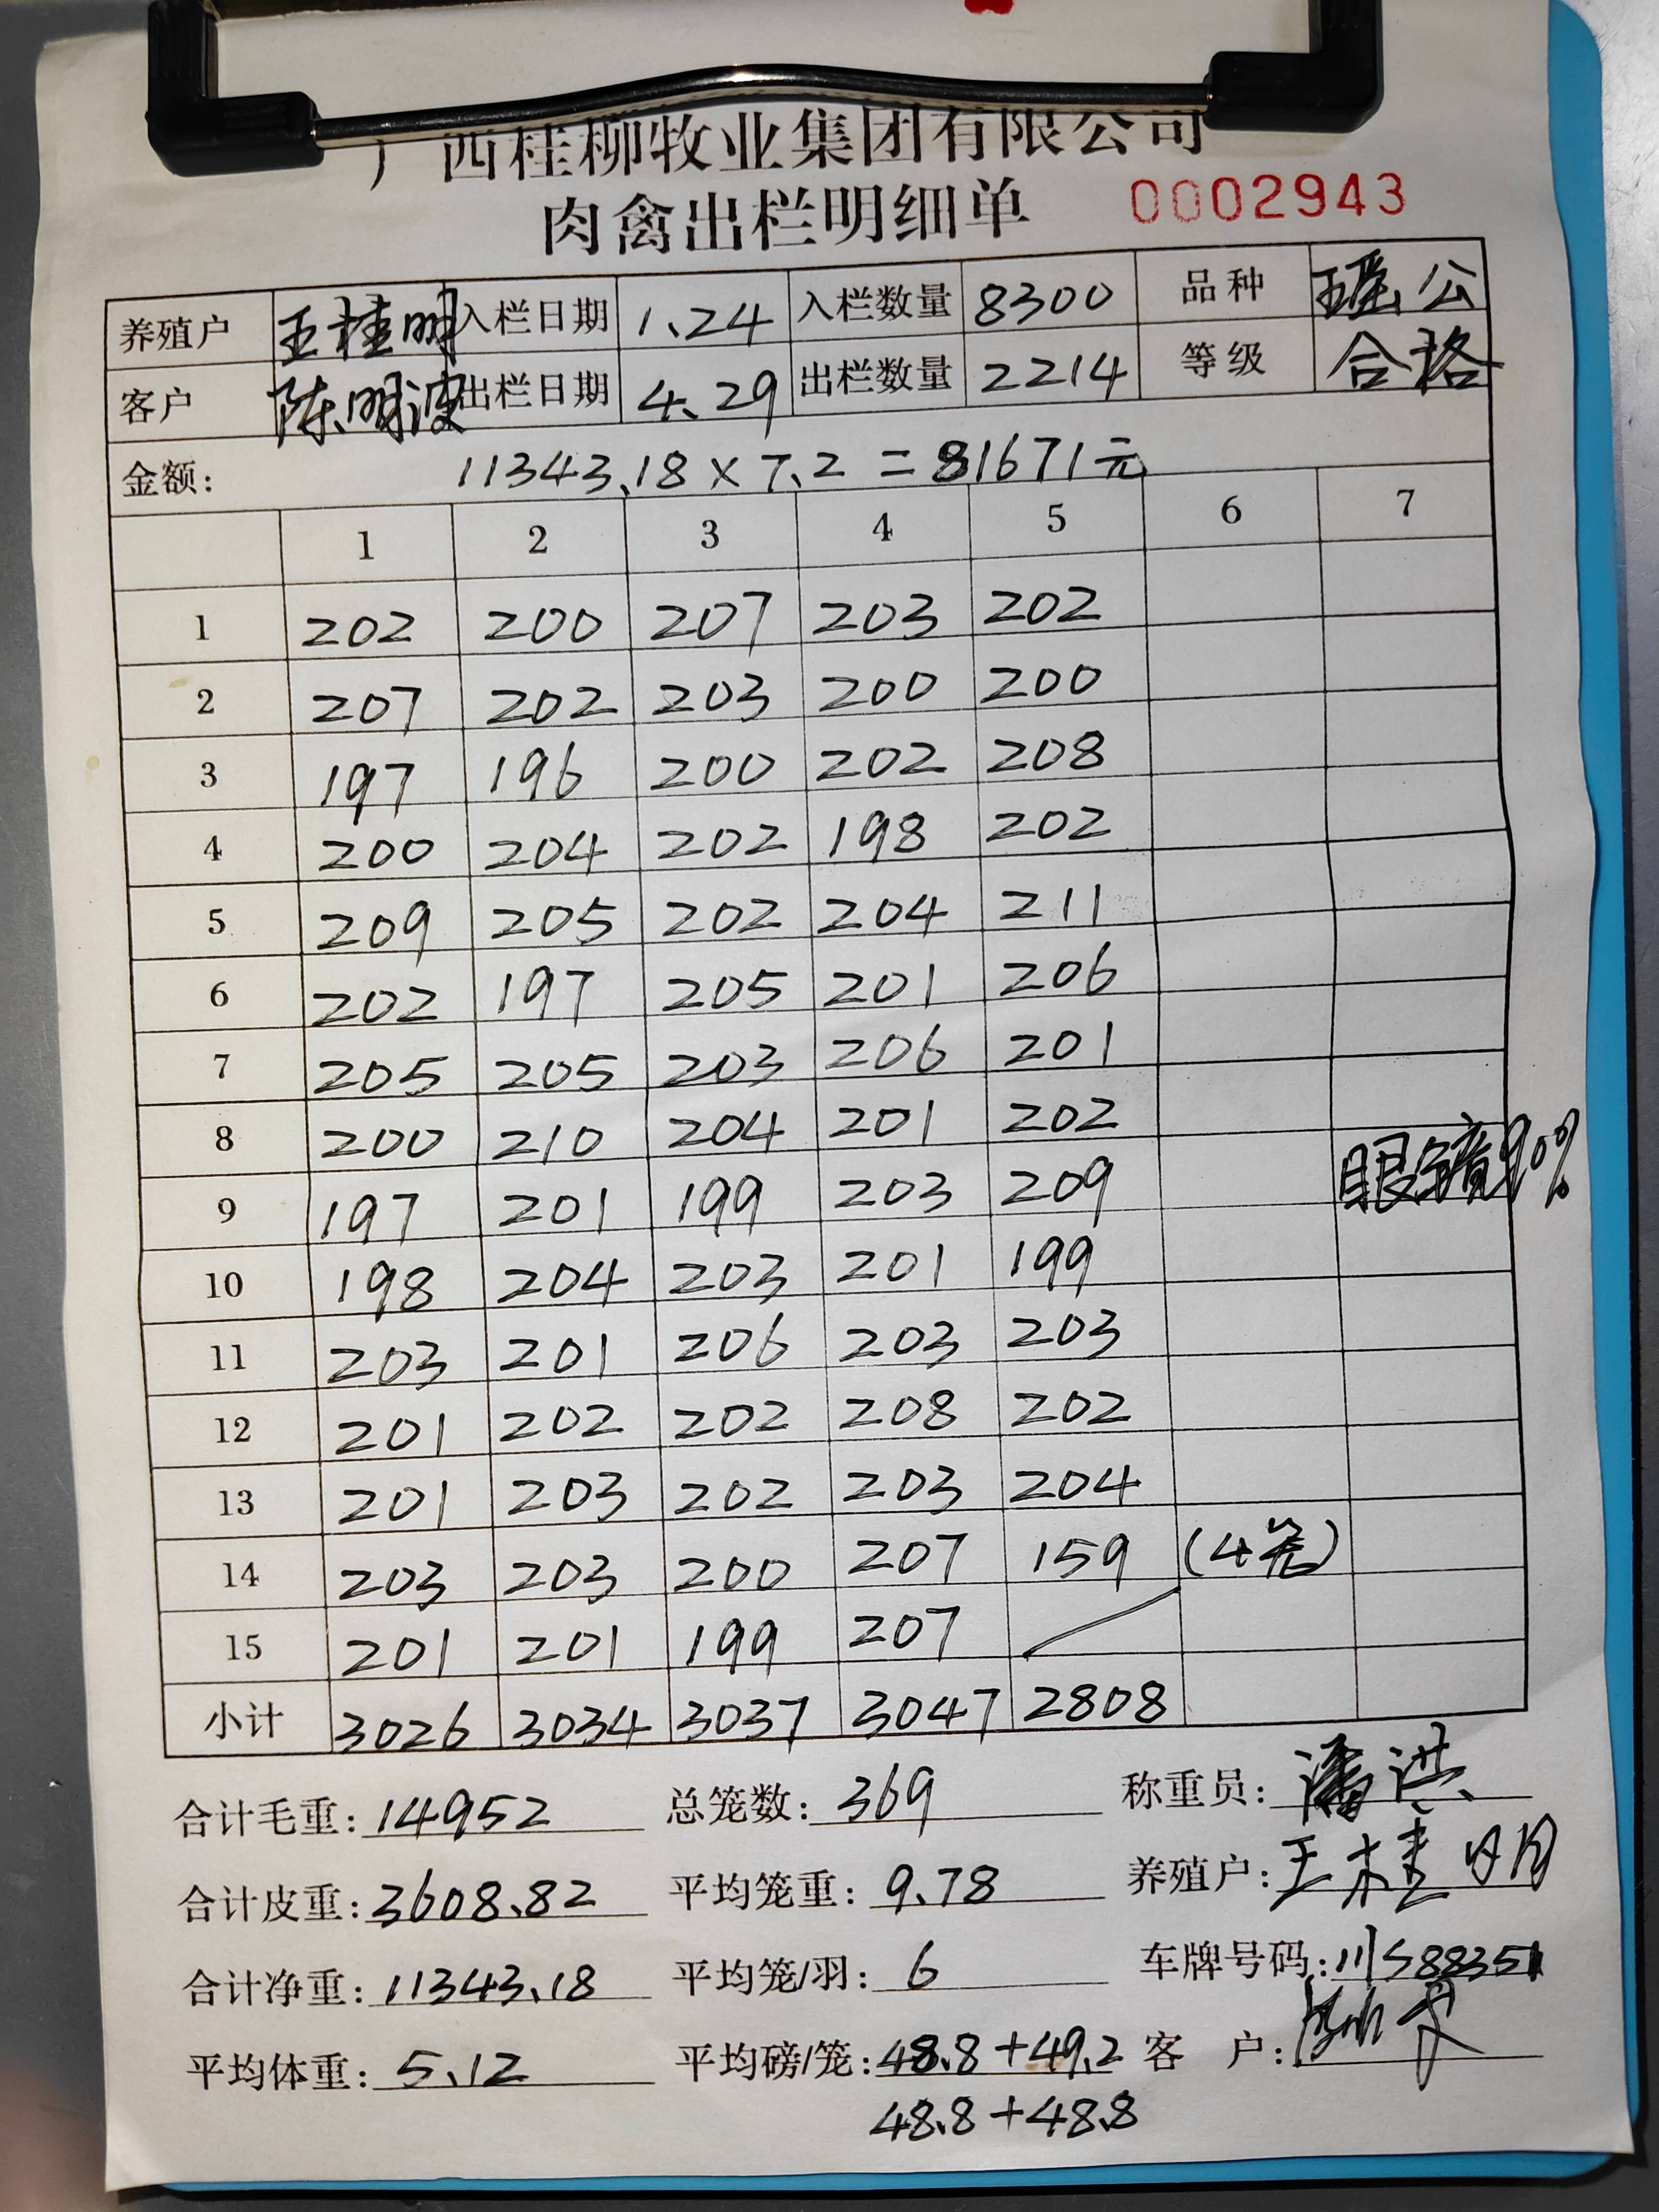 广西桂柳牧业集团有限公司
肉禽出栏明细单 0002943
养殖户 王桂明 入栏日期 1.24 入栏数量 8300 品种 瑶公
客户 陈明波 出栏日期 4.29 出栏数量 2214 等级 合格
金额: 11343.18×7.2=81671元
1 2 3 4 5 6 7
1 202 200 207 203 202
2 207 202 203 200 200
3 197 196 200 202 208
4 200 204 202 198 202
5 209 205 202 204 211
6 202 197 205 201 206
7 205 205 203 206 201
8 200 210 204 201 202
9 197 201 199 203 209 眼镜90%
10 198 204 203 201 199
11 203 201 206 203 203
12 201 202 202 208 202
13 201 203 202 203 204
14 203 203 200 207 159 (4笼)
15 201 201 199 207
小计 3026 3034 3037 3047 2808
合计毛重: 14952 总笼数: 369 称重员: 潘洪
合计皮重: 3608.82 平均笼重: 9.78 养殖户: 王桂明
合计净重: 11343.18 平均笼/羽: 6 车牌号码: 川S88351
平均体重: 5.12 平均磅/笼: 48.8+49.2 客 户:
48.8+48.8